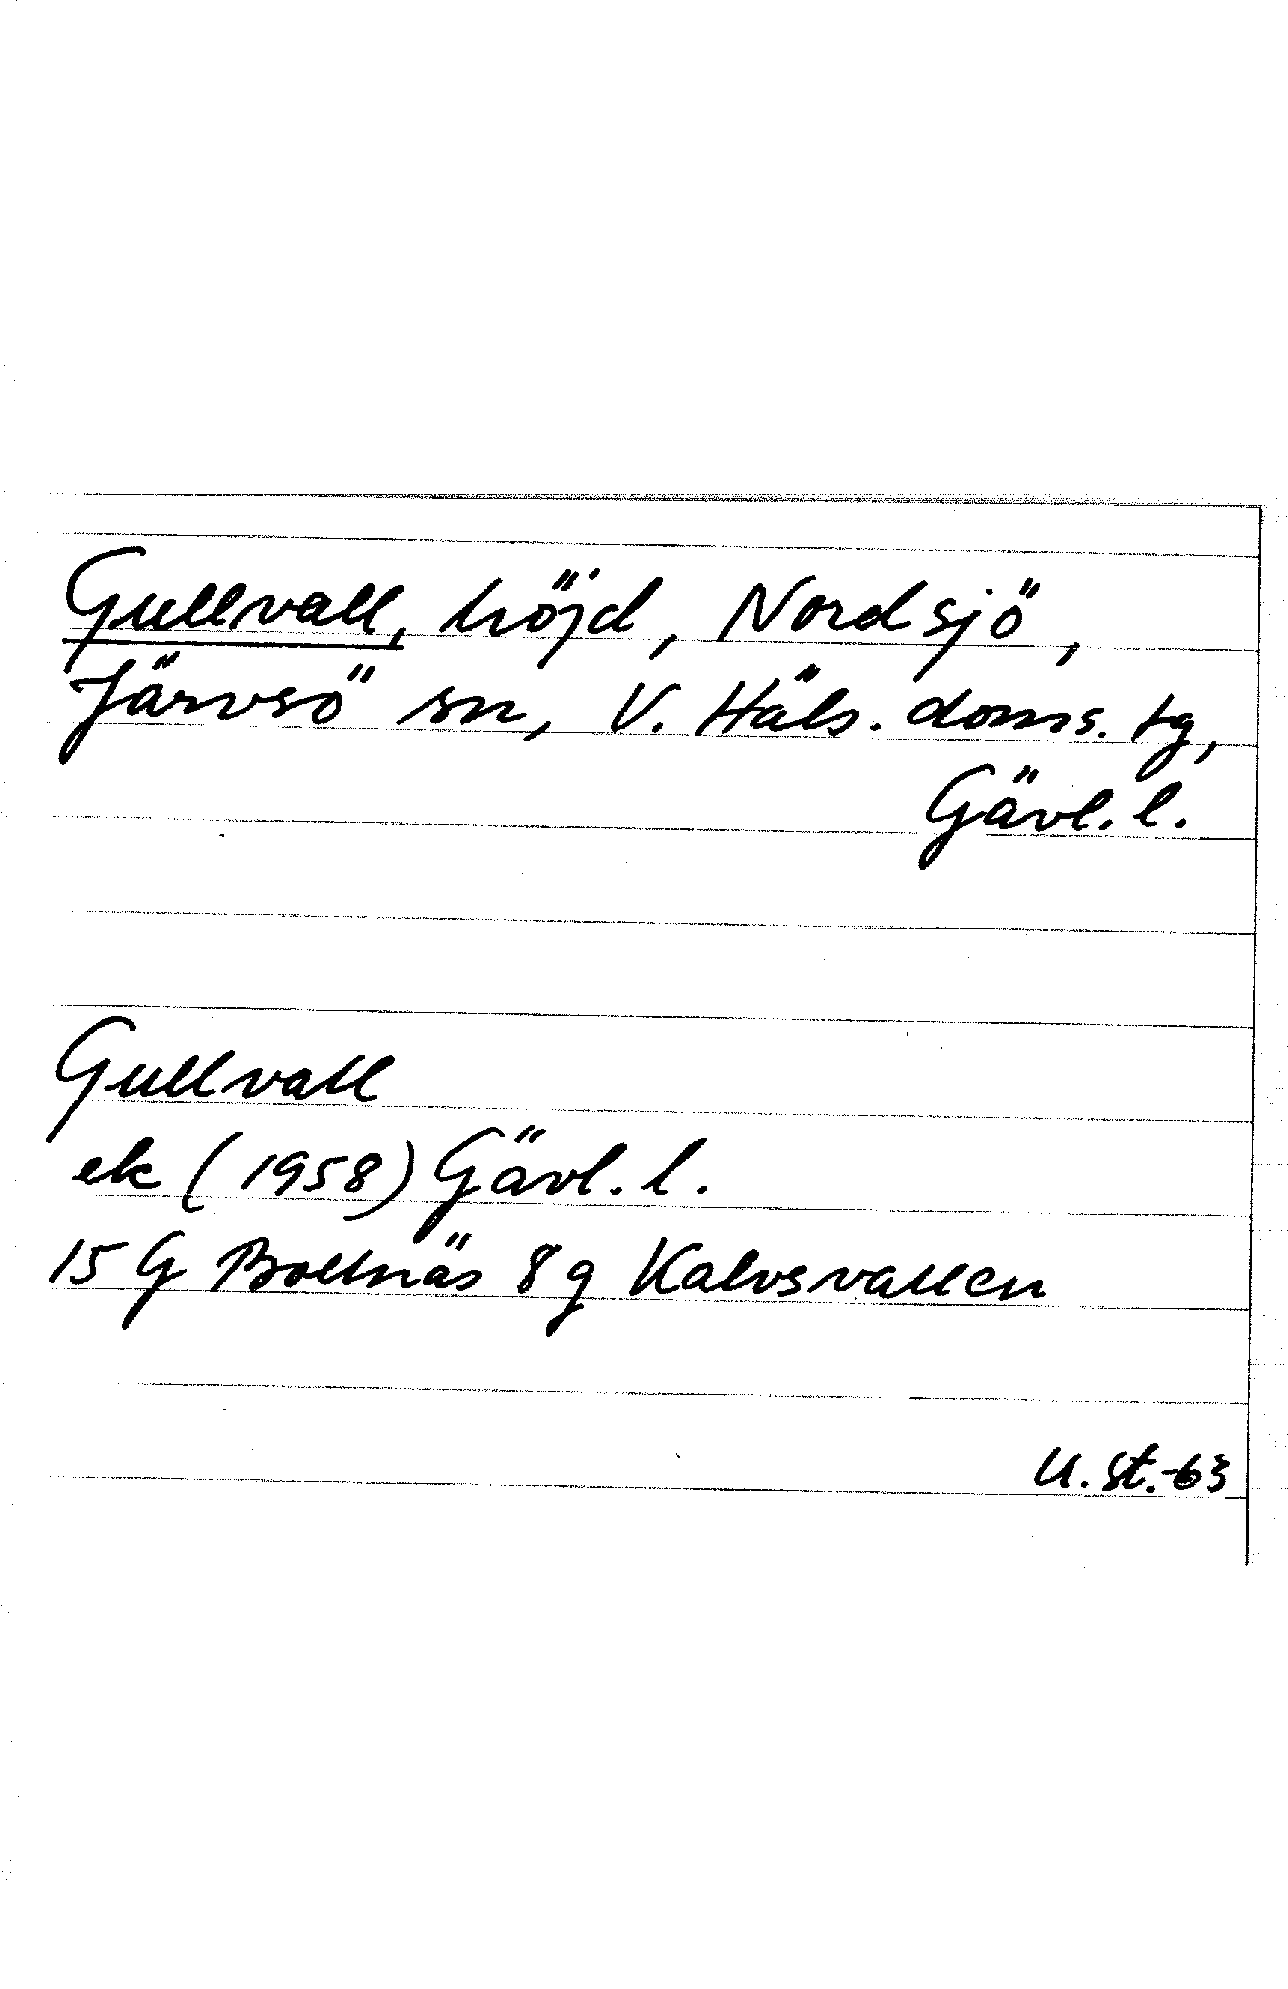 Gullvall, höjd, Nordsjö,
Järvsö sn, V. Häls. doms. tg,
Gävl. l.
Gullvall
ek (1958) Gävl. l.
15 G Bollnäs 8 g Kalvsvallen
U. St.-63